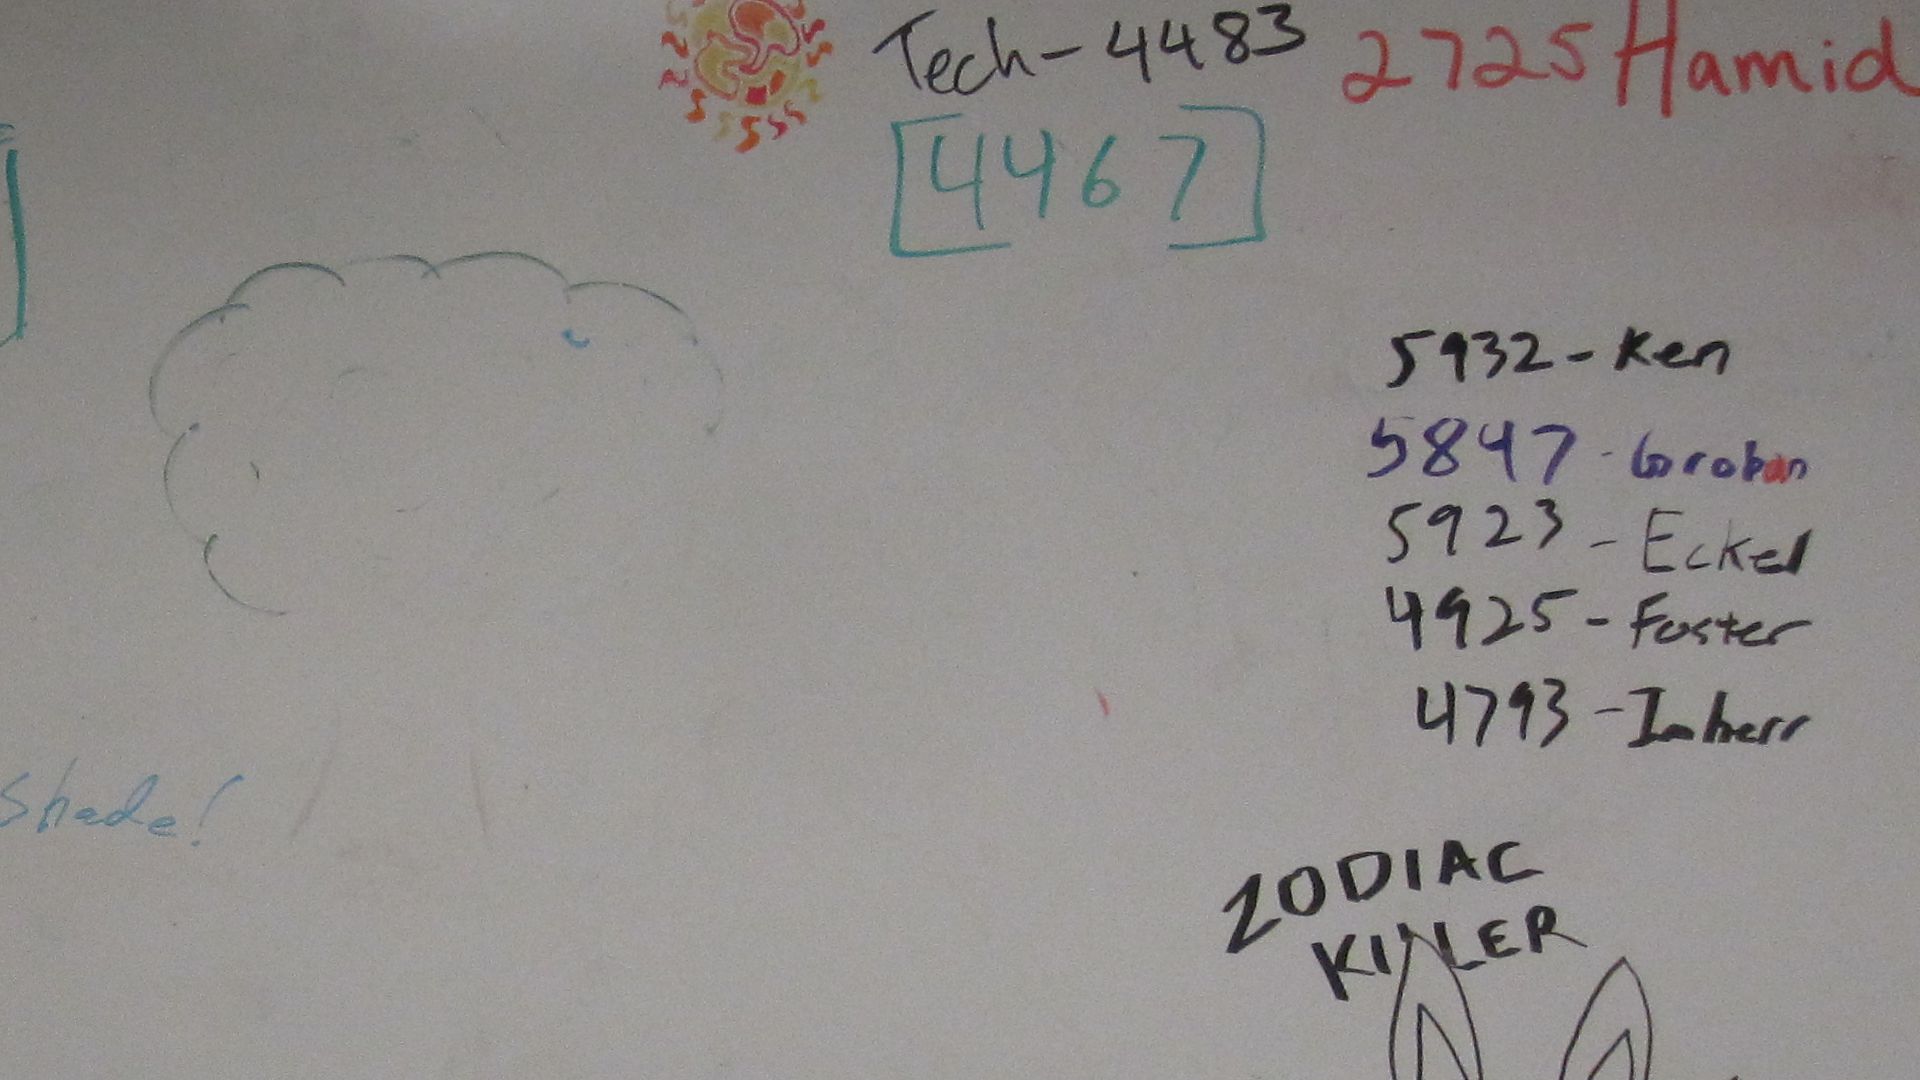 Tech-4483 2725 Hamid
[4467]
5932-Ken
5847-Groban
5923-Eckel
4925-Foster
4793-Imherr
Shade!
ZODIAC
KILLER